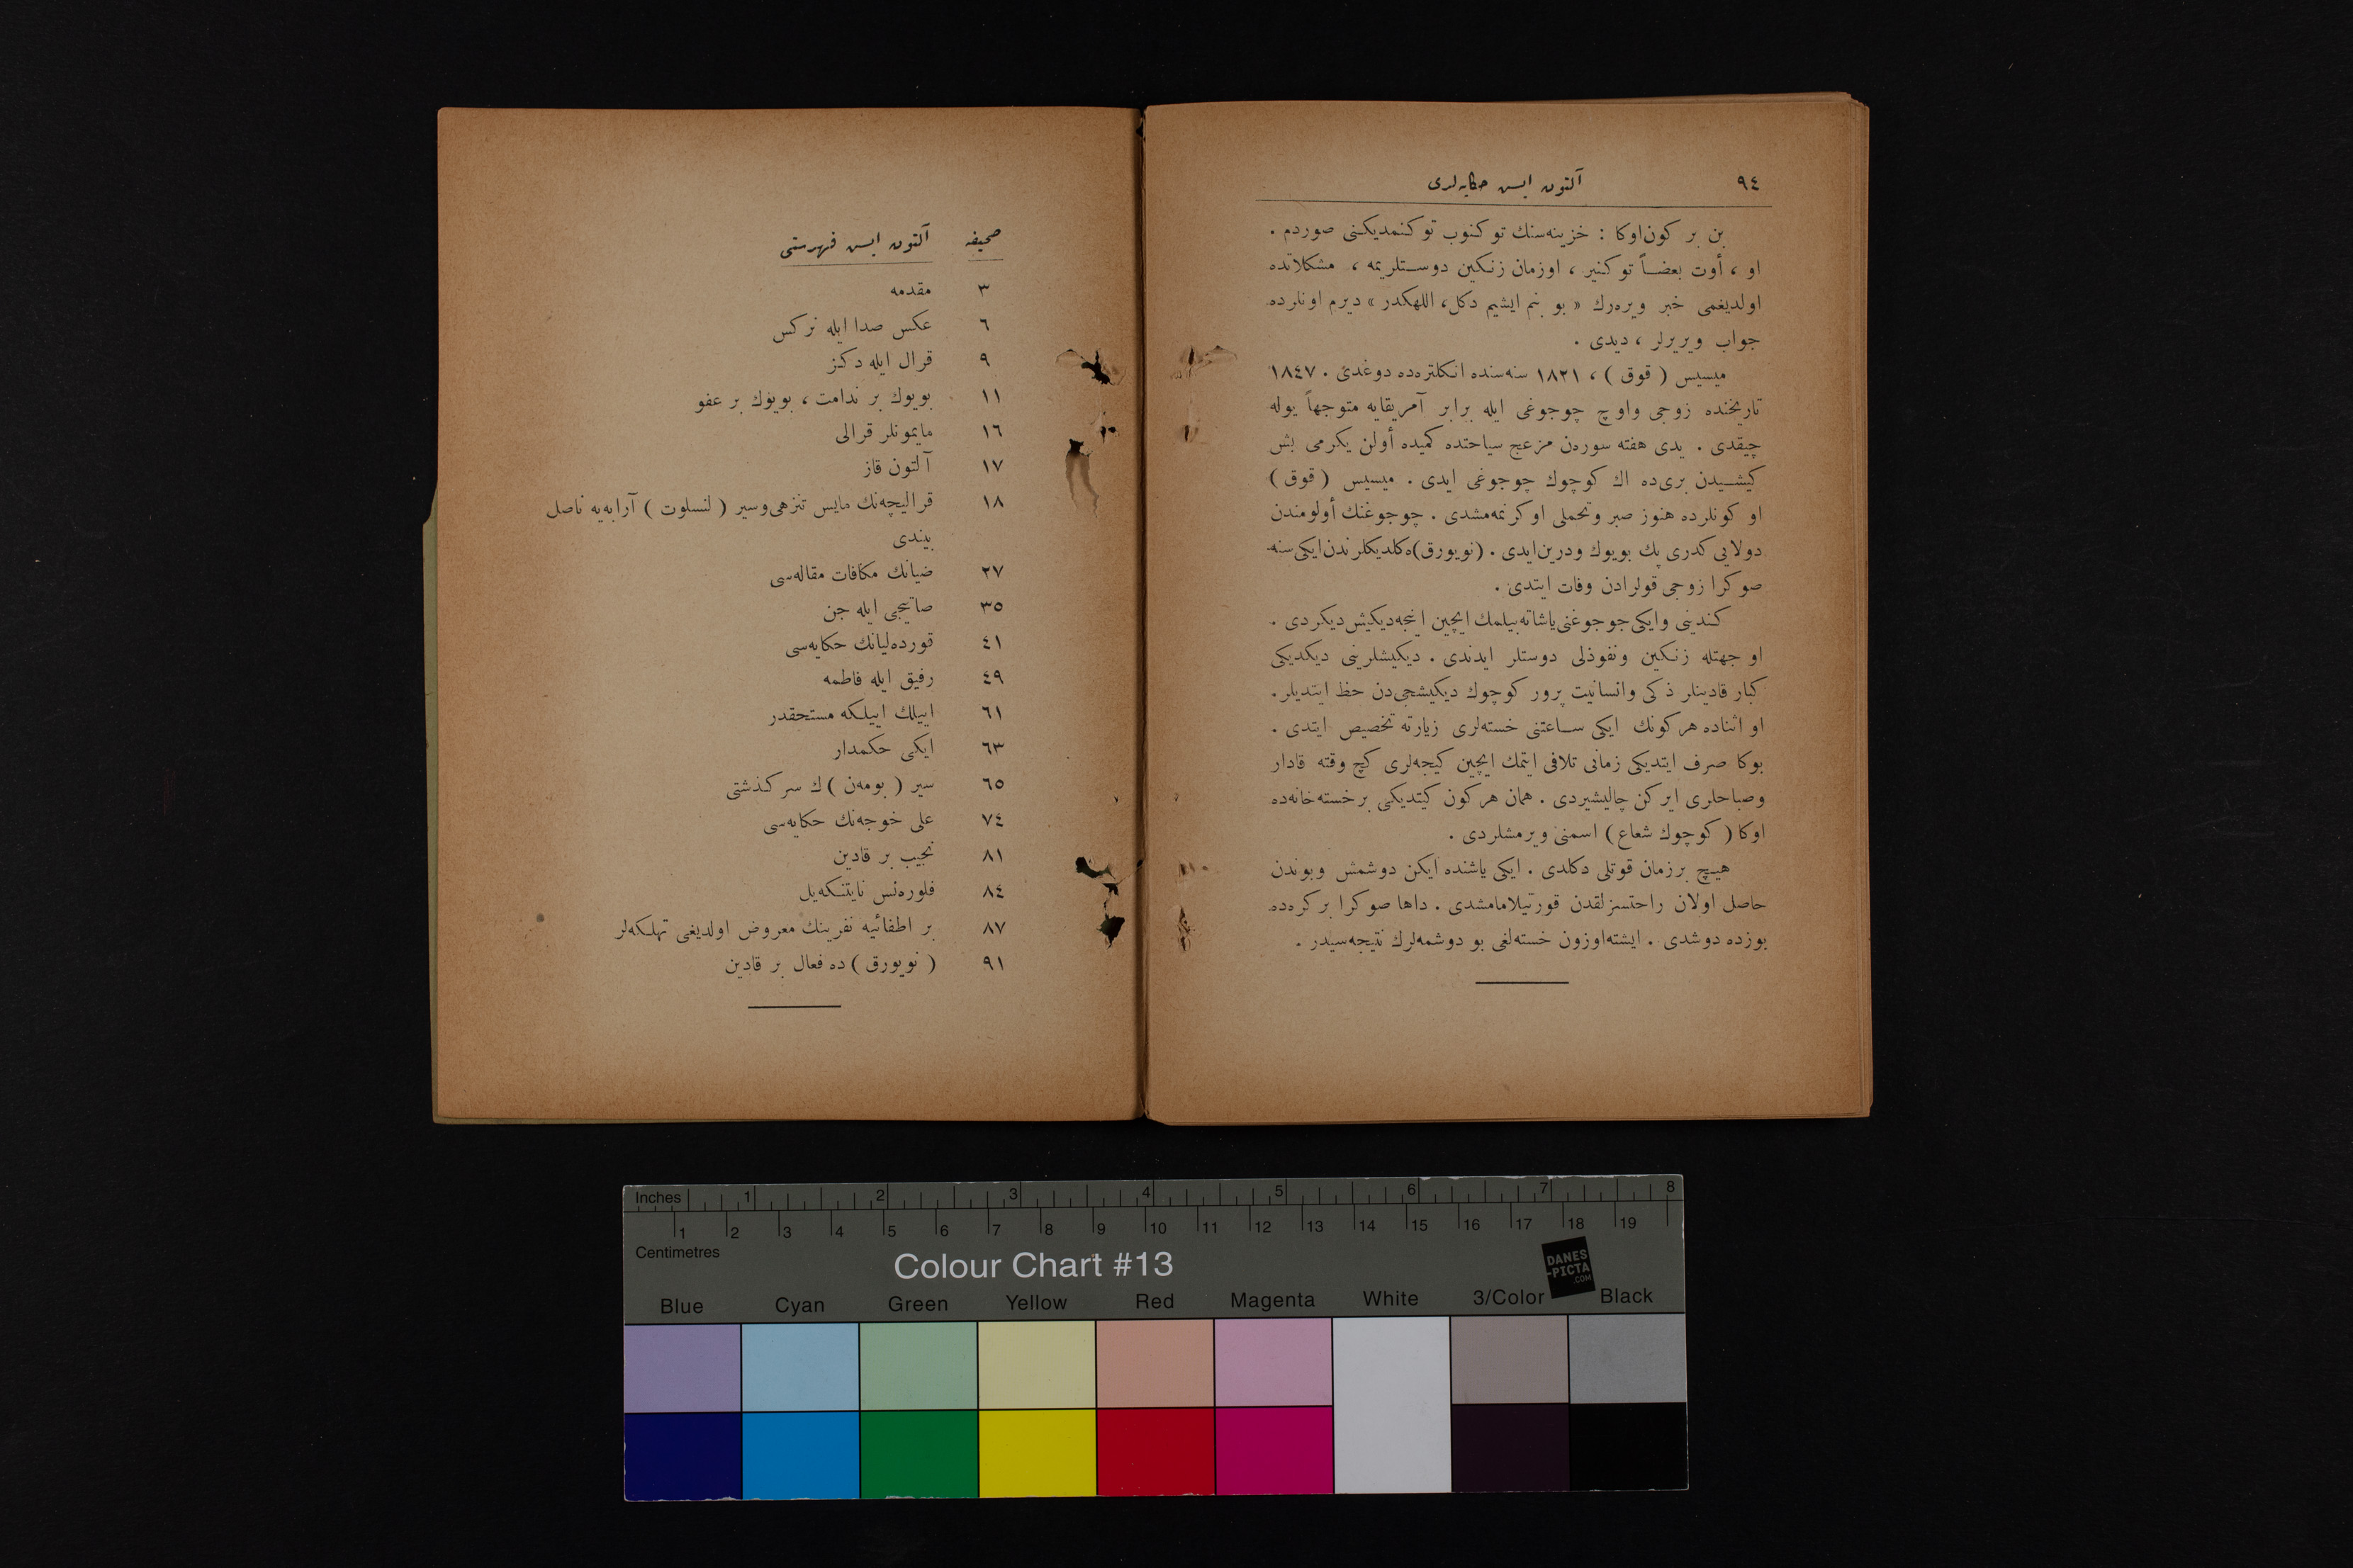 ٩٤
آلتون ايسن حكايه‌لری
بن بر كون اوكا : خزينه‌سنك توكنوب توكنمديكنی صوردم .
او ، أوت بعضـاً توكنير ، اوزمان زنكين دوستلريمه ، مشكلاتده
اولديغمی خبر ويره‌رك « بو بنم ايشيم دكل، اللهكدر » ديرم اونلرده
جواب ويريرلر ، ديدی .
ميسيس ( قوق ) ، ١٨٢١ سنه‌سنده انكلتره‌ده دوغدی . ١٨٤٧
تاريخنده زوجی واوچ چوجوغی ايله برابر آمريقايه متوجهاً يوله
چيقدی . يدی هفته سوره‌ن مزعج سياحتده كميده أولن يكرمی بش
كيشيدن بری‌ده اك كوچوك چوجوغی ايدی . ميسيس ( قوق )
او كونلرده هنوز صبر وتحملی اوكرنمه‌مشدی . چوجوغنك أولومندن
دولايی كدری پك بويوك ودرين ايدی . (نويورق)ه كلديكلرندن ايكی سنه
صوكرا زوجی قولرادن وفات ايتدی .
كندينی وايكی جوجوغنی ياشاته‌بيلمك ايچين اينجه ديكيش ديكردی .
او جهتله زنكين ونفوذلی دوستلر ايدندی . ديكيشلرينی ديكديكی
كبار قادينلر ذكی وانسانيت پرور كوچوك ديكيشجی‌دن حظ ايتديلر .
او اثناده هر كونك ايكی ساعتنی خسته‌لری زيارته تخصيص ايتدی .
بوكا صرف ايتديكی زمانی تلافی ايتمك ايچين كيجه‌لری كچ وقته قادار
وصباحلری ايركن چاليشيردی . همان هر كون كيتديكی بر خسته‌خانه‌ده
اوكا ( كوچوك شعاع ) اسمنی ويرمشلردی .
هيچ بر زمان قوتلی دكلدی . ايكی ياشنده ايكن دوشمش وبوندن
حاصل اولان راحتسزلقدن قورتيلامامشدی . داها صوكرا بر كره‌ده
بوزده دوشدی . ايشته اوزون خسته‌لغی بو دوشمه‌لرك نتيجه‌سيدر .
صحيفه آلتون ايسن فهرستی
٣ مقدمه
٦ عكس صدا ايله نركس
٩ قرال ايله دكز
١١ بويوك بر ندامت ، بويوك بر عفو
١٦ مايمونلر قرالی
١٧ آلتون قاز
١٨ قراليچه‌نك مايس تنزهی وسير ( لنسلوت ) آرابه‌يه ناصل
بيندی
٢٧ ضيانك مكافات مقاله‌سی
٣٥ صاتيجی ايله جن
٤١ قورده‌ليانك حكايه‌سی
٤٩ رفيق ايله فاطمه
٦١ اييلك اييلكه مستحقدر
٦٣ ايكی حكمدار
٦٥ سير ( بومه‌ن ) ك سركذشتی
٧٤ علی خوجه‌نك حكايه‌سی
٨١ نجيب بر قادين
٨٤ فلوره‌نس نايتنكه‌يل
٨٧ بر اطفائيه نفرينك معروض اولديغی تهلكه‌لر
٩١ ( نويورق ) ده فعال بر قادين
Inches 1 2 3 4 5 6 7 8
1 2 3 4 5 6 7 8 9 10 11 12 13 14 15 16 17 18 19
Centimetres
Colour Chart #13
DANES
-PICTA
.COM
Blue Cyan Green Yellow Red Magenta White 3/Color Black